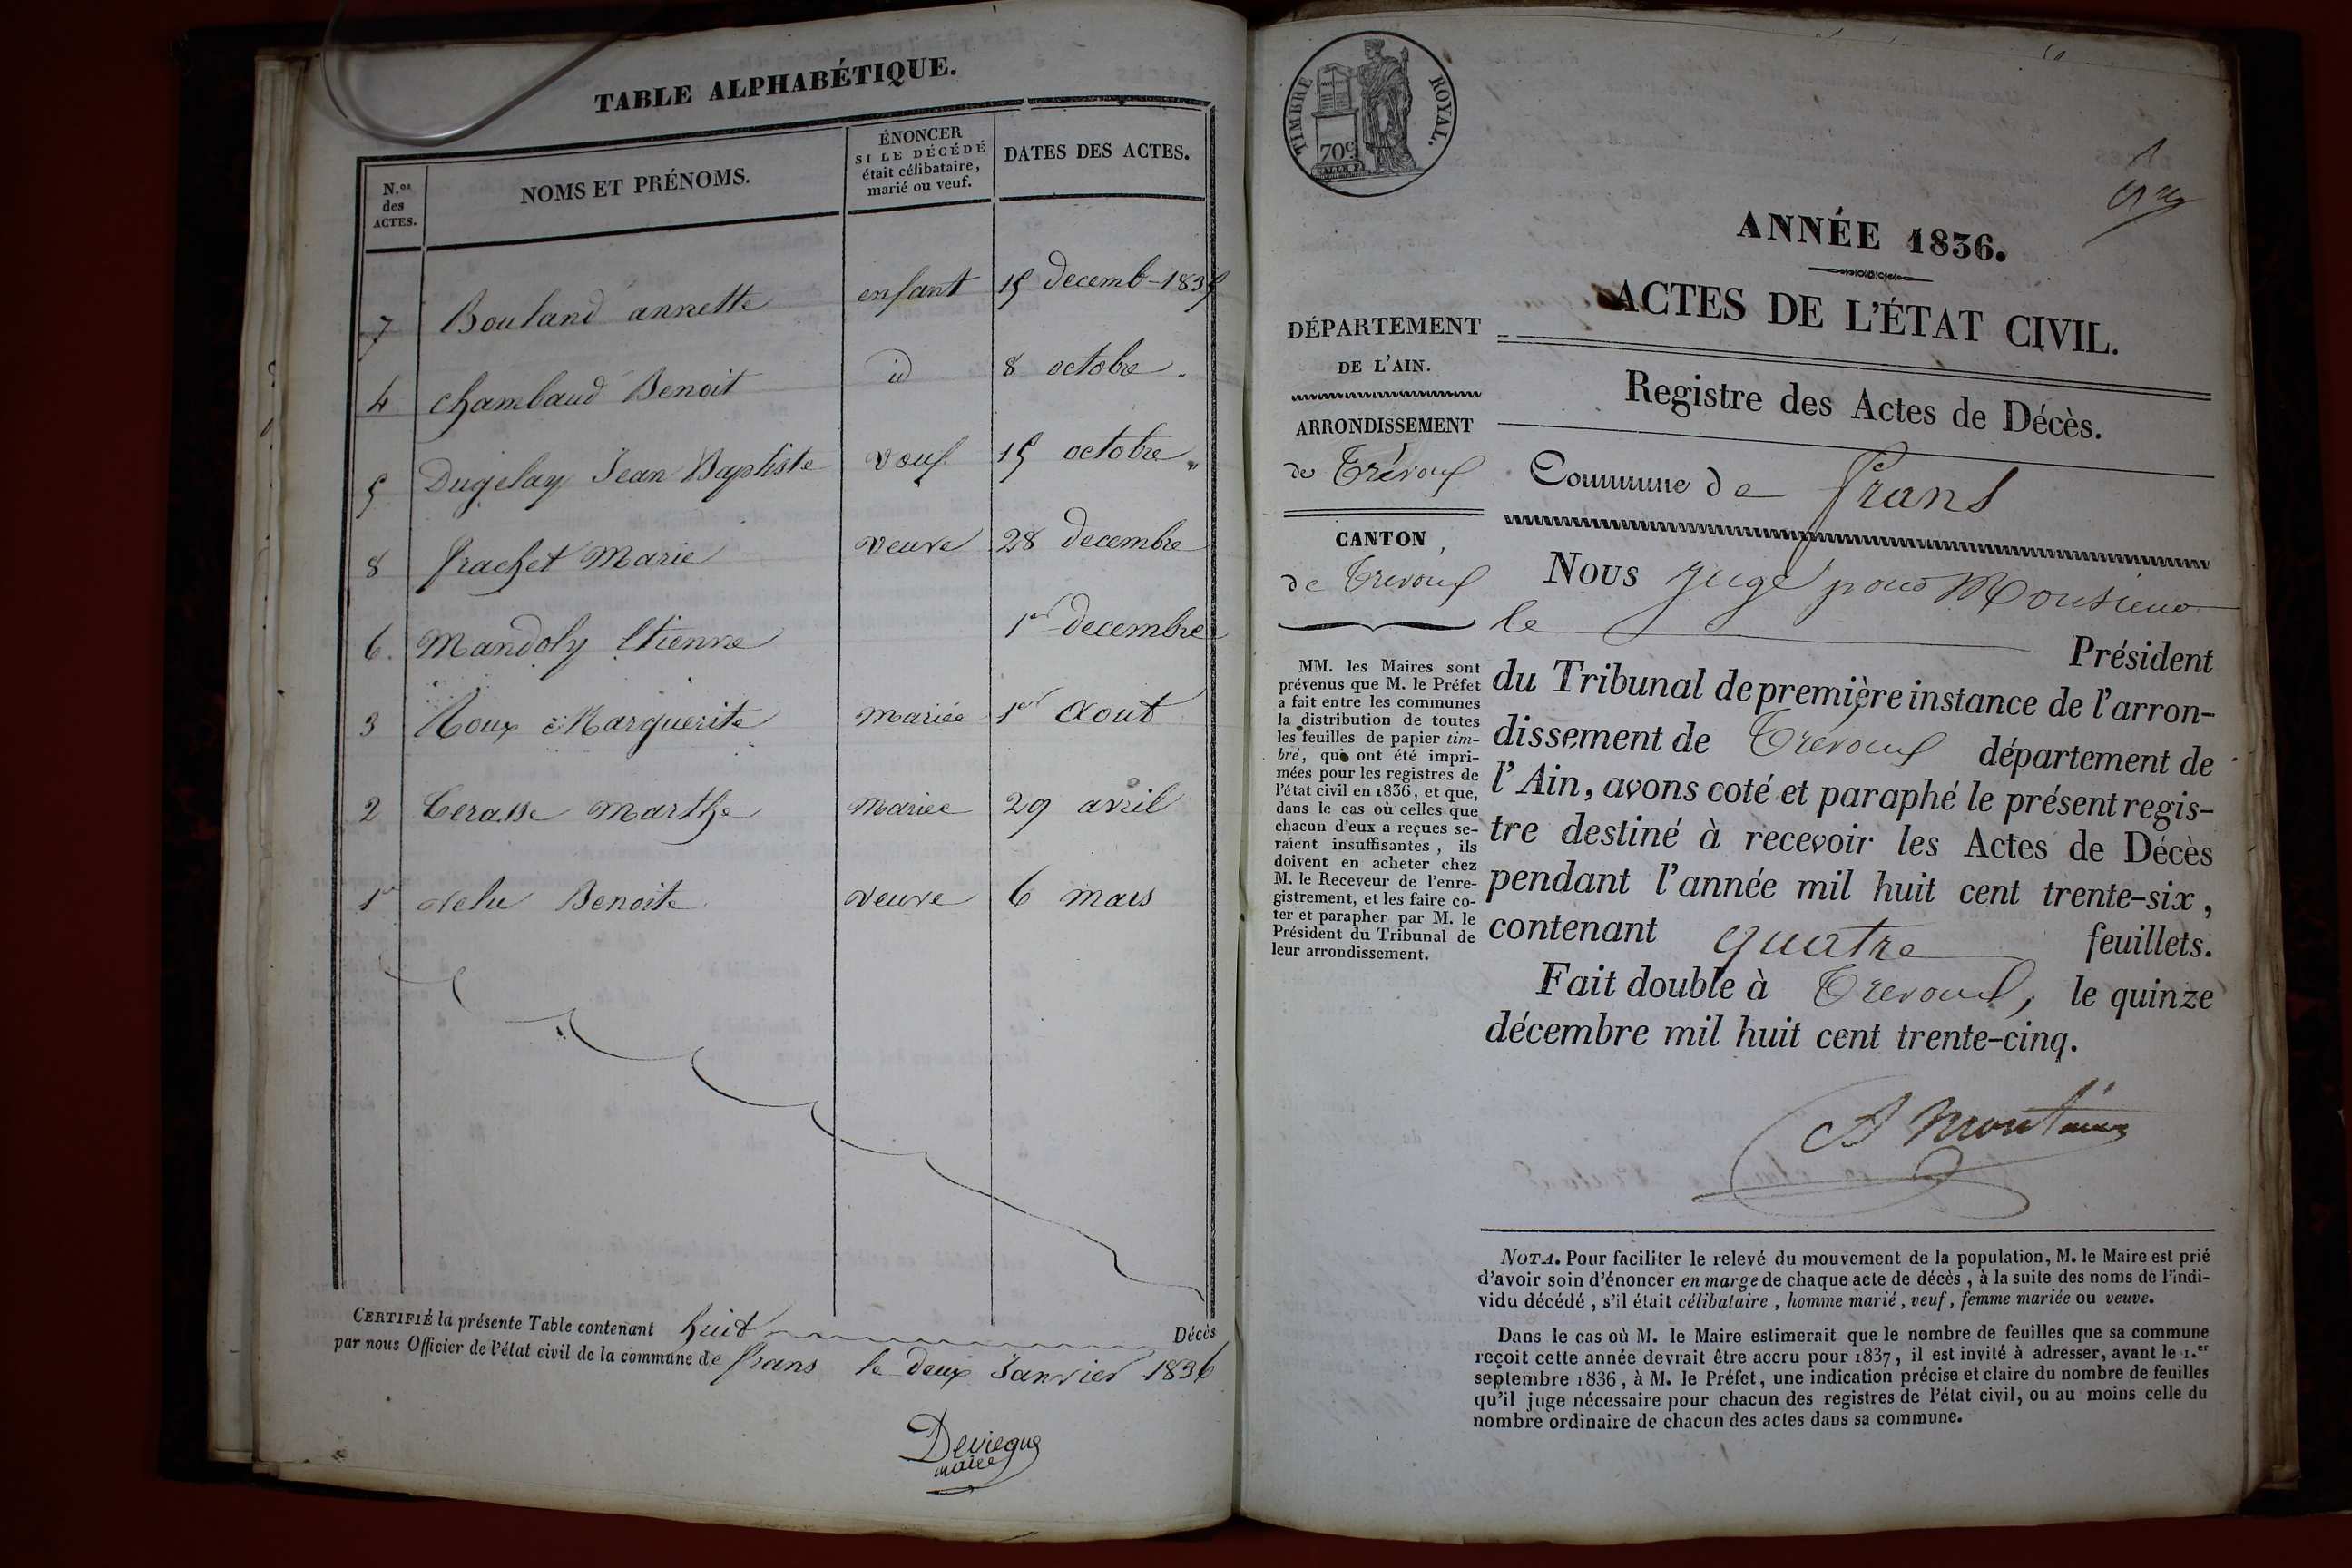 TABLE ALPHABÉTIQUE.
N.os des ACTES.
NOMS ET PRÉNOMS.
ÉNONCER
SI LE DÉCÉDÉ
était célibataire,
marié ou veuf.
DATES DES ACTES.
7 Bouland annette enfant 15 decemb-1835
4 chambaud Benoit id 8 octobre "
5 Dugelay Jean Baptiste veuf 15 octobre "
8 frachet Marie veuve 28 decembre
6. Mandoly Etienne 1er decembre
3 Roux Marguerite mariée 1er Aout
2 Terasse Marthe mariee 29 avril
1er velu Benoite veuve 6 mars
CERTIFIÉ la présente Table contenant huit Décès
par nous Officier de l'état civil de la commune de frans le deux Janvier 1836
maire
TIMBRE ROYAL.
70c
ANNÉE 1836.
ACTES DE L'ÉTAT CIVIL.
DÉPARTEMENT
DE L'AIN.
ARRONDISSEMENT
de Trévoux
CANTON
de Trevoux
MM. les Maires sont
prévenus que M. le Préfet
a fait entre les communes
la distribution de toutes
les feuilles de papier tim-
bré, qui ont été impri-
mées pour les registres de
l'état civil en 1836, et que,
dans le cas où celles que
chacun d'eux a reçues se-
raient insuffisantes, ils
doivent en acheter chez
M. le Receveur de l'enre-
gistrement, et les faire co-
ter et parapher par M. le
Président du Tribunal de
leur arrondissement.
Registre des Actes de Décès.
Commune de frans
Nous juge pour Monsieur
le Président
du Tribunal de première instance de l'arron-
dissement de Trevoux département de
l'Ain, avons coté et paraphé le présent regis-
tre destiné à recevoir les Actes de Décès
pendant l'année mil huit cent trente-six,
contenant quatre feuillets.
Fait double à Trevoux, le quinze
décembre mil huit cent trente-cinq.
NOTA. Pour faciliter le relevé du mouvement de la population, M. le Maire est prié
d'avoir soin d'énoncer en marge de chaque acte de décès, à la suite des noms de l'indi-
vidu décédé, s'il était célibataire, homme marié, veuf, femme mariée ou veuve.
Dans le cas où M. le Maire estimerait que le nombre de feuilles que sa commune
reçoit cette année devrait être accru pour 1837, il est invité à adresser, avant le 1.er
septembre 1836, à M. le Préfet, une indication précise et claire du nombre de feuilles
qu'il juge nécessaire pour chacun des registres de l'état civil, ou au moins celle du
nombre ordinaire de chacun des actes dans sa commune.